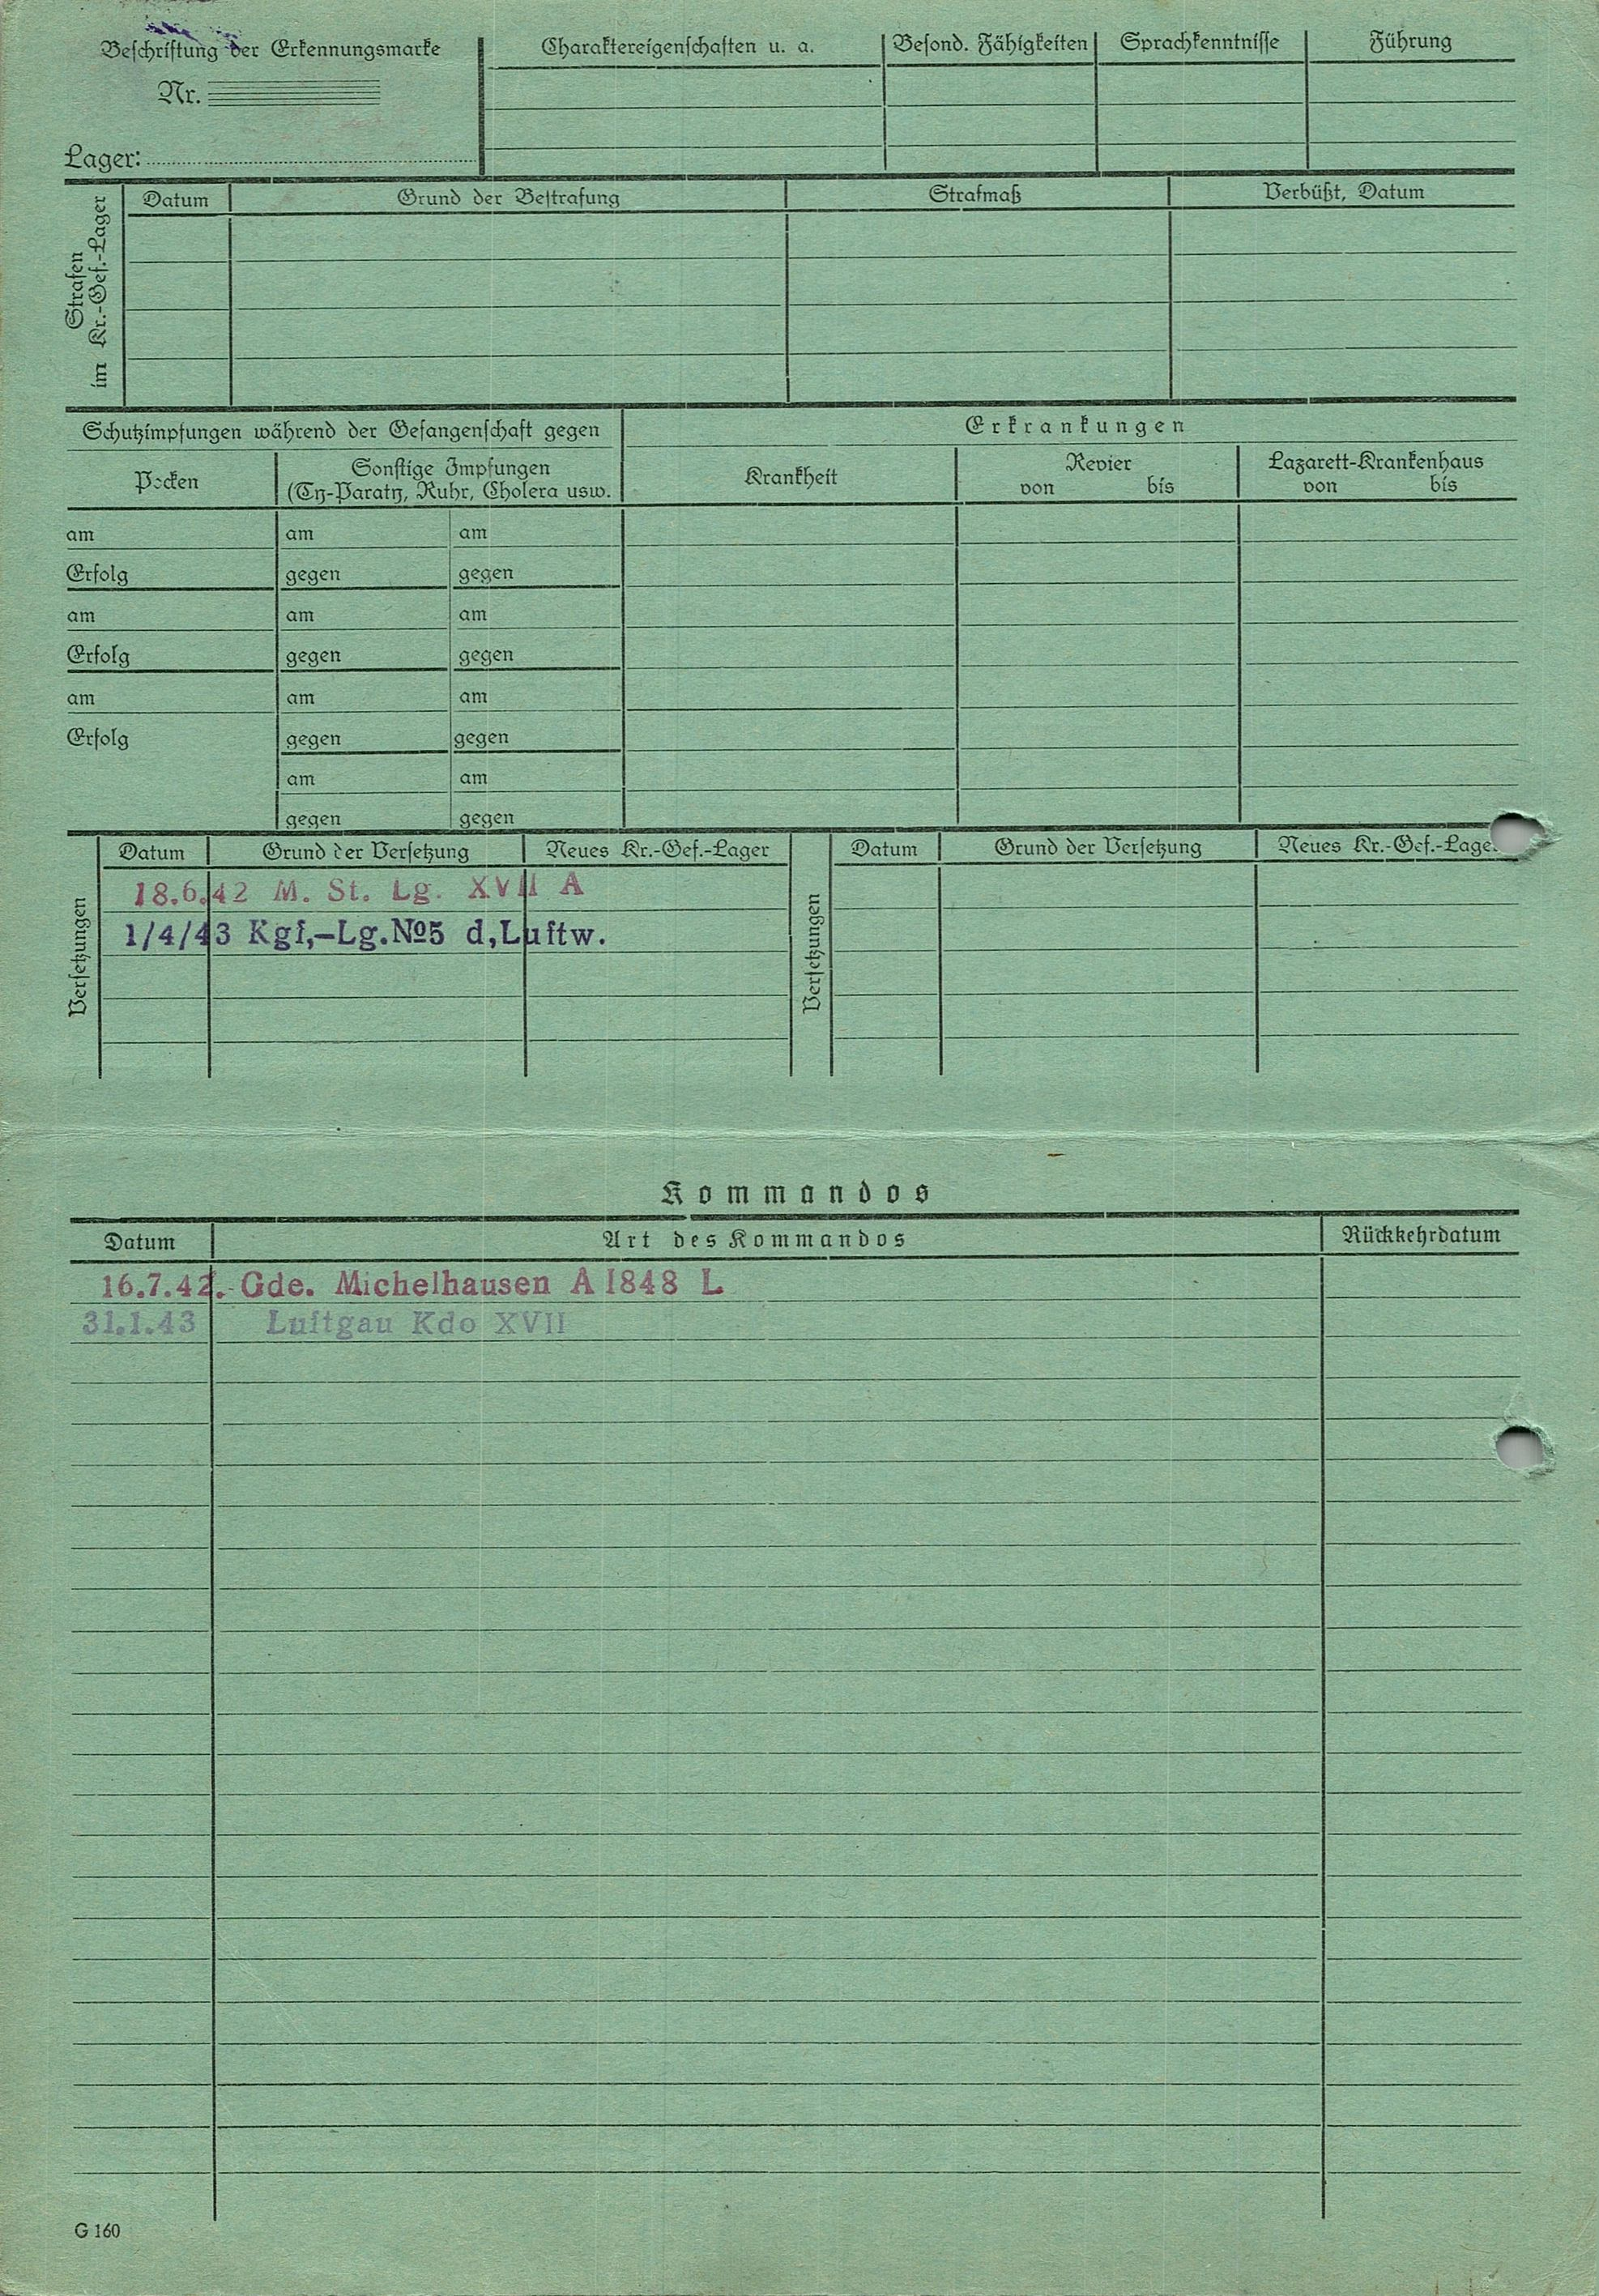 Beschriftung der Erkennungsmarke
Nr.
Lager:
Charaktereigenschaften u. a. Besond. Fähigkeiten Sprachkenntnisse Führung
Strafen
im Kr.-Gef.-Lager
Datum Grund der Bestrafung Strafmaß Verbüßt, Datum
Schutzimpfungen während der Gefangenschaft gegen
Erkrankungen
Pocken
Sonstige Impfungen
(Ty-Paraty, Ruhr, Cholera usw.
Krankheit
Revier
von bis
Lazarett-Krankenhaus
von bis
am am am
Erfolg gegen gegen
am am am
Erfolg gegen gegen
am am am
Erfolg gegen gegen
am am
gegen gegen
Versetzungen
Datum Grund der Versetzung Neues Kr.-Gef.-Lager
18.6.42 M. St. Lg. XVII A
1/4/43 Kgf,-Lg.№5 d,Luftw.
Versetzungen
Datum Grund der Versetzung Neues Kr.-Gef.-Lage
Kommandos
Datum Art des Kommandos Rückkehrdatum
16.7.42. Gde. Michelhausen A 1848 L
31.1.43 Luftgau Kdo XVII
G 160